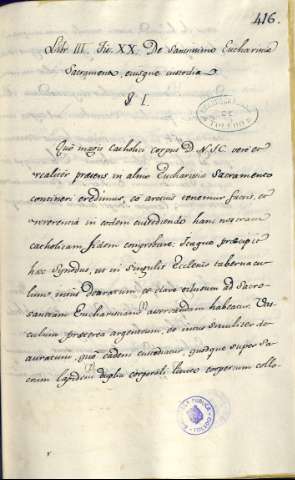 416.
Libr. III. Tit. XX. De Sanctissimo Eucharistiæ
Sacramento, eiusque custodia.
§ I.
Quò magis Catholici corpus D. N. J. C. verè et
realiter præsens in almo Eucharistiæ Sacramento
contineri credimus, eò arctius tenemur factis, et
reverentia in eodem custodiendo hanc nostram
catholicam fidem comprobare. Itaque præcipit
hæc Synodus, ut in singulis Ecclesiis tabernacu-
lum intus deauratum, et clave clausum ad Sacro-
sanctam Eucharistiam (1) asservandam habeatur. Vas-
culum præterea argenteum, et intus similiter de-
auratum, quo eadem custodiatur, quodque super Sa-
crum lapidem (2) duplici corporali, lineo corporum collo-